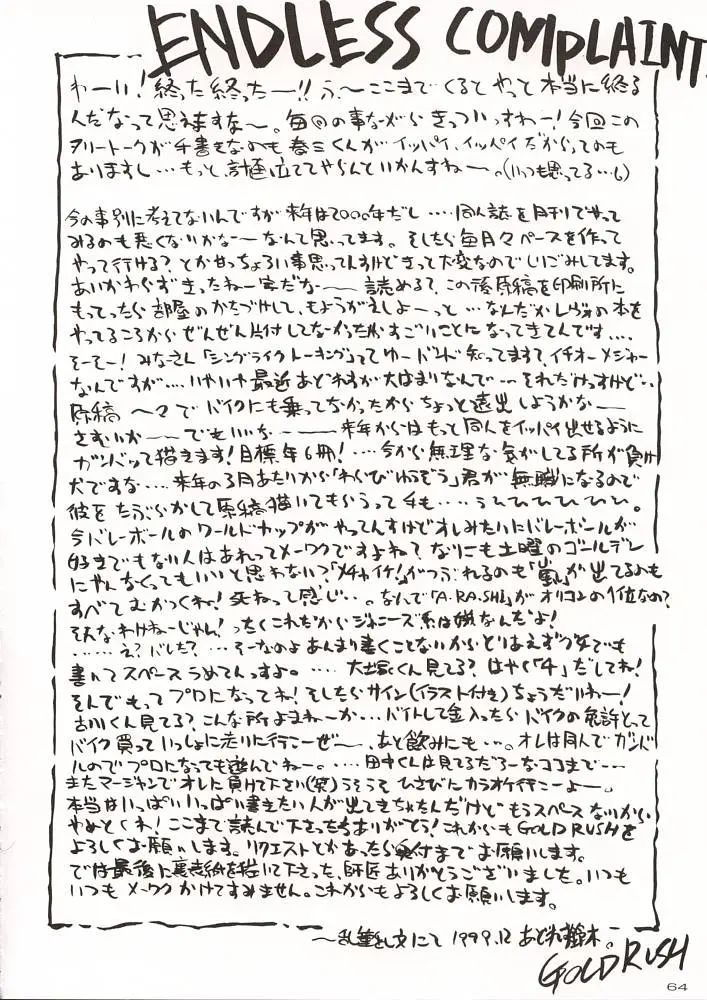 ENDLESS COMPLAINT
わーい!終った終ったー!!ふ〜ここまでくるとやっと本当に終る
んだなって思えますな〜。毎回の事ながらきっついっすわー!今回この
フリートークが手書きなのも春三くんがイッパイ、イッパイだからってのも
ありますし…もっと、計画立ててやらんといかんすねー。(いつも思ってる…し)
今の事別に考えてないんですが来年は2000年だし‥‥同人誌を月刊でやって
みるのも悪くないかなーなんて思ってます。そしたら毎月々ペースを作って
やって行ける?とか甘っちょろい事思ってんすけどきっと大変なのでしりごみしてます。
あいかわらず きったねー字だなー 読める?、この後原稿を印刷所に
もってったら部屋のかたづけして、もようがえしよーっと…なんだかレヴォの本を
やってるころからぜんぜん片付してなかったからすごいことになってきてんです‥‥
そーそー!みなさん「シングライクトーキング」ってゆーバンド知ってます?、イチオーメジャー
なんですが‥‥いやいや最近あどれすが大はまりなんで…それだけっすけど…
原稿 〜々でバイクにも乗ってなかったからちょっと遠出しようかなー
さむいかー でもいいなー 来年からはもっと同人をイッパイ出せるように
ガンバって描きます!目標年6冊!‥‥今から無理な気がしてる所が負け
犬ですな‥‥来年の3月あたりから「わらびゆうぞう」君が無職になるので
彼をたぶらかして原稿描いてもらうって手も‥‥うひひひひひひ。
今バレーボールのワールドカップがやってんすけどオレみたいにバレーボールが
好きでもない人はあれってメーワクですよね?なにも土曜のゴールデン
にやんなくってもいいと思わない?「メチャイケ!」がつぶれるのも「嵐」が出てるのも
すべてむかつくね!死ねって感じ…。なんで「A・RA・SHI」がオリコンの1位なの?
そんなわけねーじゃん!ったくこれだからジャニーズ系は嫌なんだよ!
‥‥‥え?バレた?…そーなのよあんまり書くことないからとりあえずグチでも
書いてスペースうめてんっすよ。‥‥大塚くん見てる?はやく「4」だしてね!
そんでもってプロになってね!そしたらサイン(イラスト付き)ちょうだいねー!
古川くん見てる?こんな所よまねーか‥‥バイトして金入ったらバイクの免許とって
バイク買っていっしょに走りに行こーぜー、あと飲みにも…。オレは同人でガンバ
ルのでプロになっても遊んでねー。‥‥田中くんは見てるだろーなココまで…
またマージャンでオレに負けて下さい(笑)うそうそ ひさびにカラオケ行こーよー。
本当はいっぱいいっぱい書きたい人が出てきちゃたんだけど もうスペースないから
やめとくネ!ここまで読んで下さったちありがとう!これからもGOLD RUSHを
よろしくお願いします。リクエストとかあったら奥付までお願いします。
では最後に裏表紙を描いて下さった、師匠ありがとうございました。いつも
いつもメーワクかけてすみません。これからもよろしくお願いします。
〜乱筆乱文にて 1999.12 あどれす鈴木。
GOLD RUSH
64